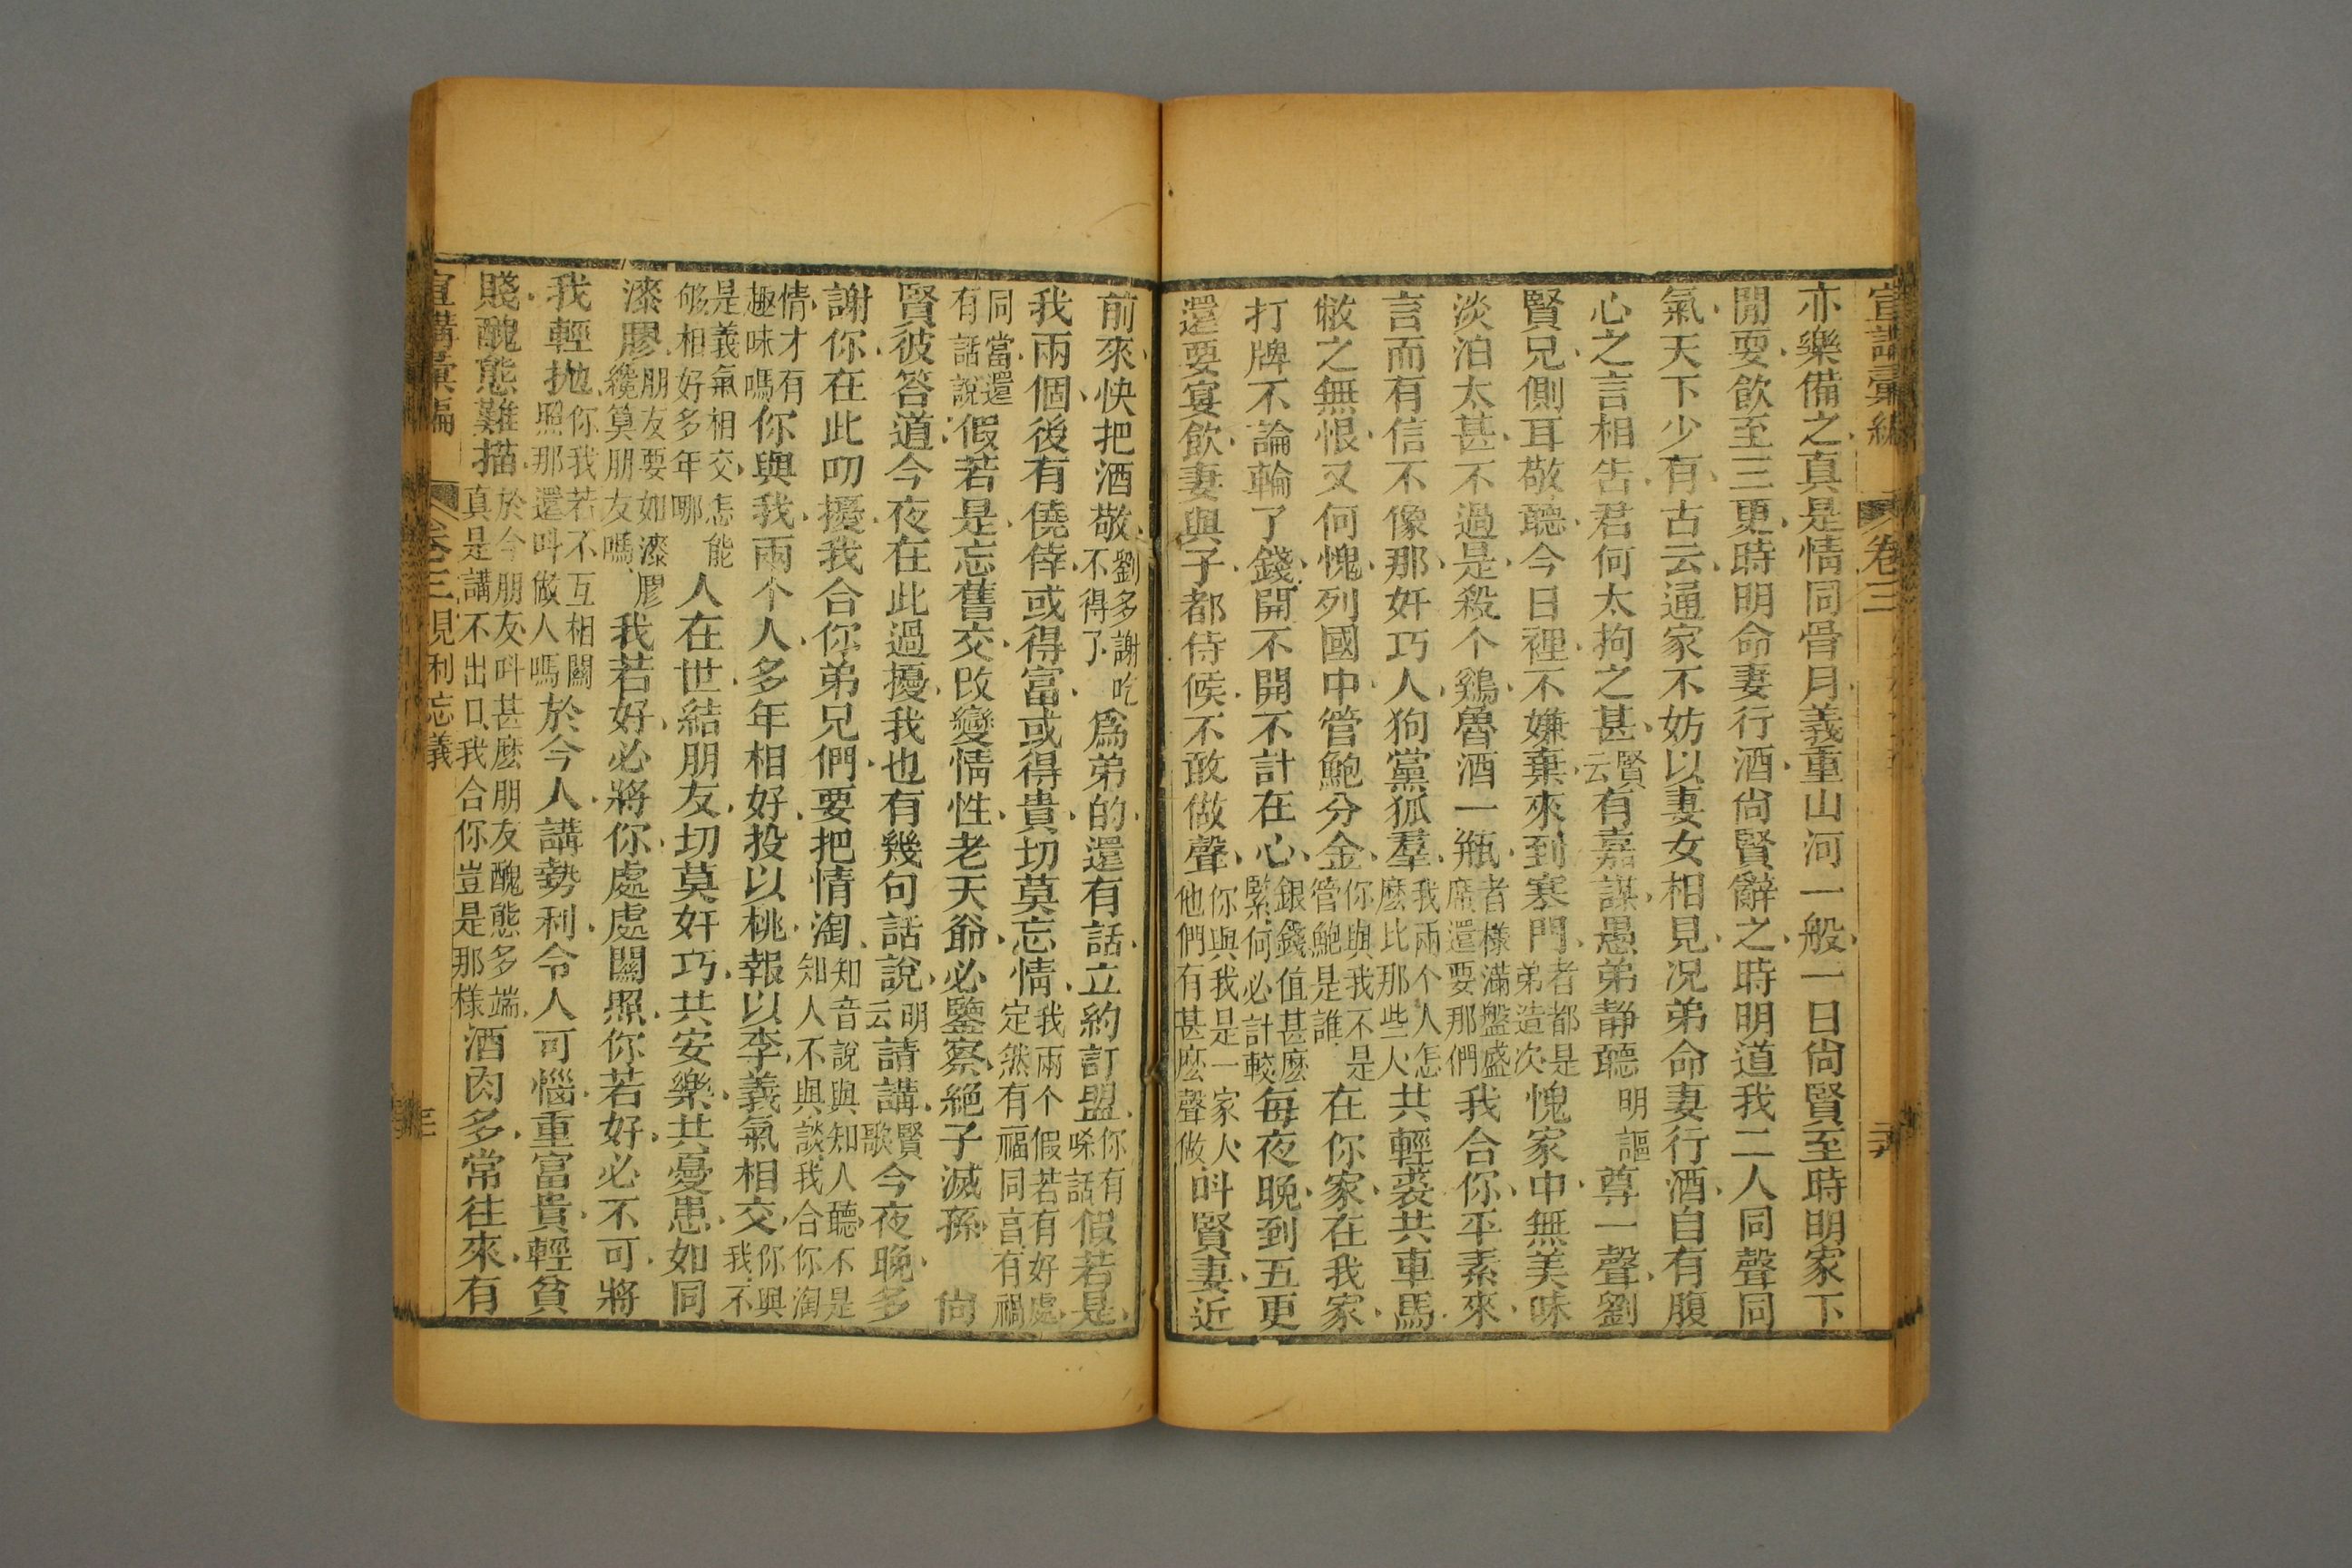 宣講彙編 卷三
亦樂備之真是情同骨月義重山河一般一日尙賢至時明家下
閒耍飲至三更時明命妻行酒尙賢辭之時明道我二人同聲同
氣天下少有古云通家不妨以妻女相見况弟命妻行酒自有腹
心之言相告君何太拘之甚賢云有嘉謀愚弟静聽明謳尊一聲劉
賢兄側耳敬聽今日裡不嫌棄來到寒門者都是弟造次愧家中無美味
淡泊太甚不過是殺个鷄魯酒一瓶者樣滿盤盛席還要那們我合你平素來
言而有信不像那奸巧人狗黨狐羣我兩个人怎麽比那些人共輕裘共車馬
敝之無恨又何愧列國中管鮑分金你與我不是管鮑是誰在你家在我家
打牌不論輪了錢開不開不計在心銀錢值甚麽緊何必計較每夜晚到五更
還要宴飲妻與子都侍候不敢做聲你與我是一家人他們有甚麽聲做呌賢妻近
前來快把酒敬劉多謝吃不得了爲弟的還有話立約訂盟你有啥話假若是
我兩個後有僥倖或得富或得貴切莫忘情我兩个假若有好處定然有福同享有禍
同當還有話說假若是忘舊交改變情性老天爺必鑒察絕子滅孫尙
賢彼答道今夜在此過擾我也有幾句話說明云請講賢歌今夜晚多
謝你在此叨擾我合你弟兄們要把情淘知音說與知人聽不是知人不與談我合你淘
情才有趣味嗎你與我兩个人多年相好投以桃報以李義氣相交你與我不
是義氣相交怎能够相好多年哪人在世結朋友切莫奸巧共安樂共憂患如同
漆膠朋友要如漆膠纔算朋友嗎我若好必將你處處關照你若好必不可將
我輕抛你我若不互相關照那還呌做人嗎於今人講勢利令人可惱重富貴輕貧
賤醜態難描於今朋友呌甚麽朋友醜態多端真是講不出口我合你豈是那樣酒肉多常往來有
宣講彙編 卷三見利忘義